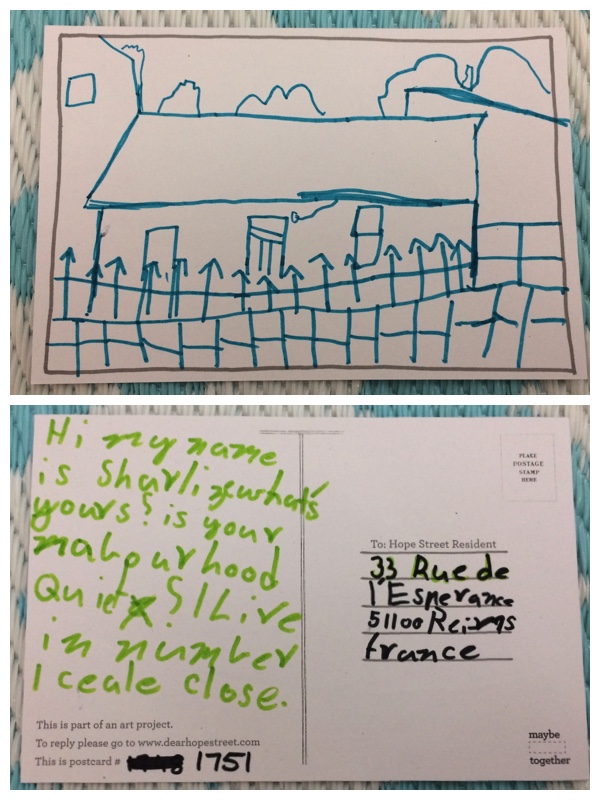 Hi my name
is Sharlize what's
yours? is your
nabourhood
Quiet? I Live
in number
1 ceale close.
This is part of an art project.
To reply please go to www.dearhopestreet.com
This is postcard # 1751
PLACE
POSTAGE
STAMP
HERE
To: Hope Street Resident
33 Rue de
l'Esperance
51100 Reims
france
maybe
together